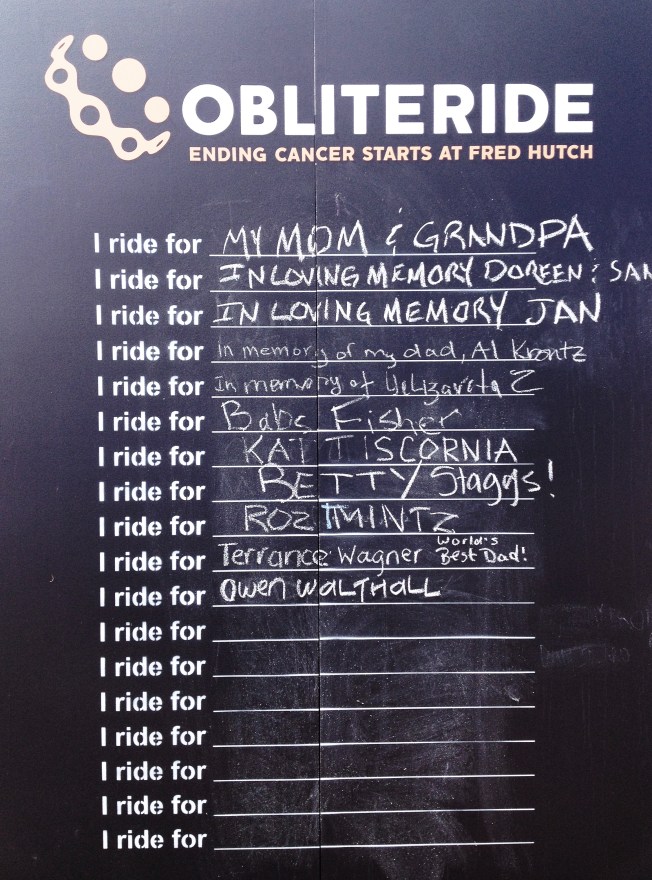 OBLITERIDE
ENDING CANCER STARTS AT FRED HUTCH
I ride for MY MOM & GRANDPA
I ride for IN LOVING MEMORY DOREEN & SAN
I ride for IN LOVING MEMORY JAN
I ride for In memory of my dad, Al Krontz
I ride for In memory of Yelizaveta Z
I ride for Babs Fisher
I ride for KAT TISCORNIA
I ride for BETTY Staggs!
I ride for ROZ MINTZ
I ride for Terrance Wagner World's Best Dad!
I ride for Owen WALTHALL
I ride for
I ride for
I ride for
I ride for
I ride for
I ride for
I ride for